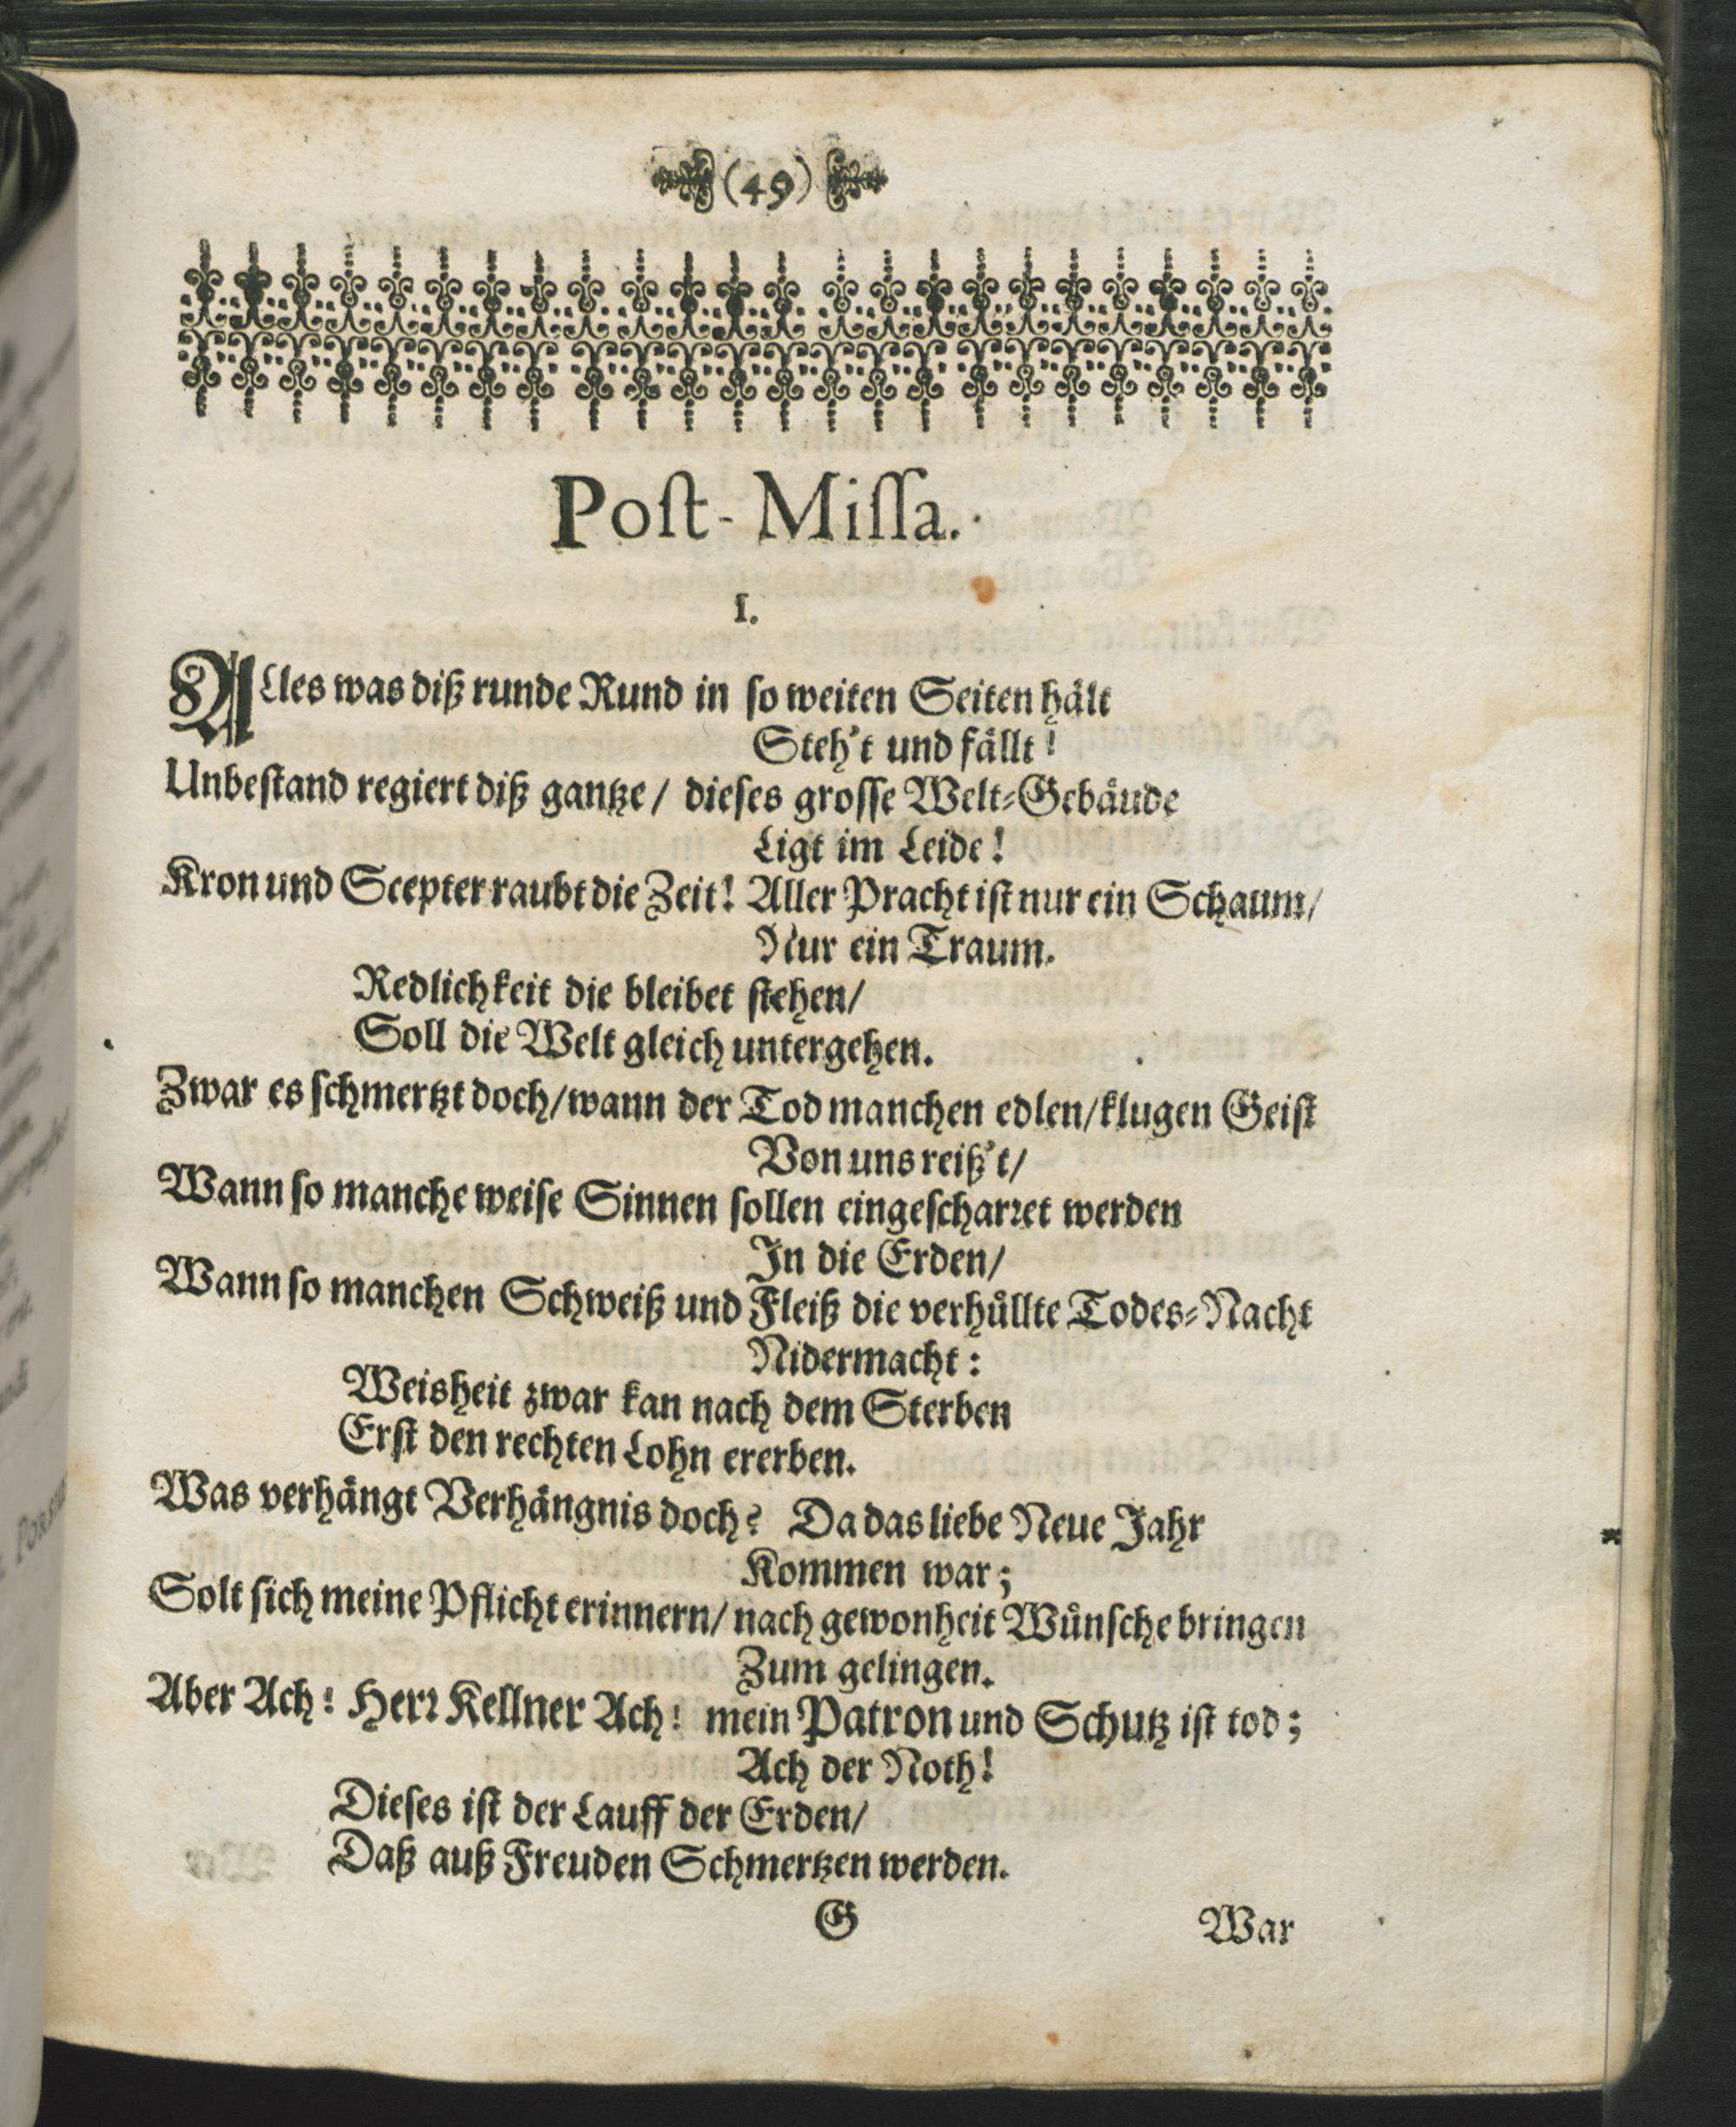 (49)
Poſt-Miſſa.
I.
ALles was diß runde Rund in ſo weiten Seiten hält
Steh't und fällt!
Unbeſtand regiert diß gantze/ dieſes groſſe Welt-Gebäude
Ligt im Leide!
Kron und Scepter raubt die Zeit! Aller Pracht iſt nur ein Schaum/
Nur ein Traum.
Redlichkeit die bleibet ſtehen/
Soll die Welt gleich untergehen.
Zwar es ſchmertzt doch/wann der Tod manchen edlen/klugen Geiſt
Von uns reiß't/
Wann ſo manche weiſe Sinnen ſollen eingeſcharꝛet werden
In die Erden/
Wann ſo manchen Schweiß und Fleiß die verhüllte Todes-Nacht
Nidermacht:
Weisheit zwar kan nach dem Sterben
Erſt den rechten Lohn ererben.
Was verhängt Verhängnis doch? Da das liebe Neue Jahr
Kommen war;
Solt ſich meine Pflicht erinnern/ nach gewonheit Wünſche bringen
Zum gelingen.
Aber Ach! Herꝛ Kellner Ach! mein Patron und Schutz iſt tod;
Ach der Noth!
Dieſes iſt der Lauff der Erden/
Daß auß Freuden Schmertzen werden.
G War